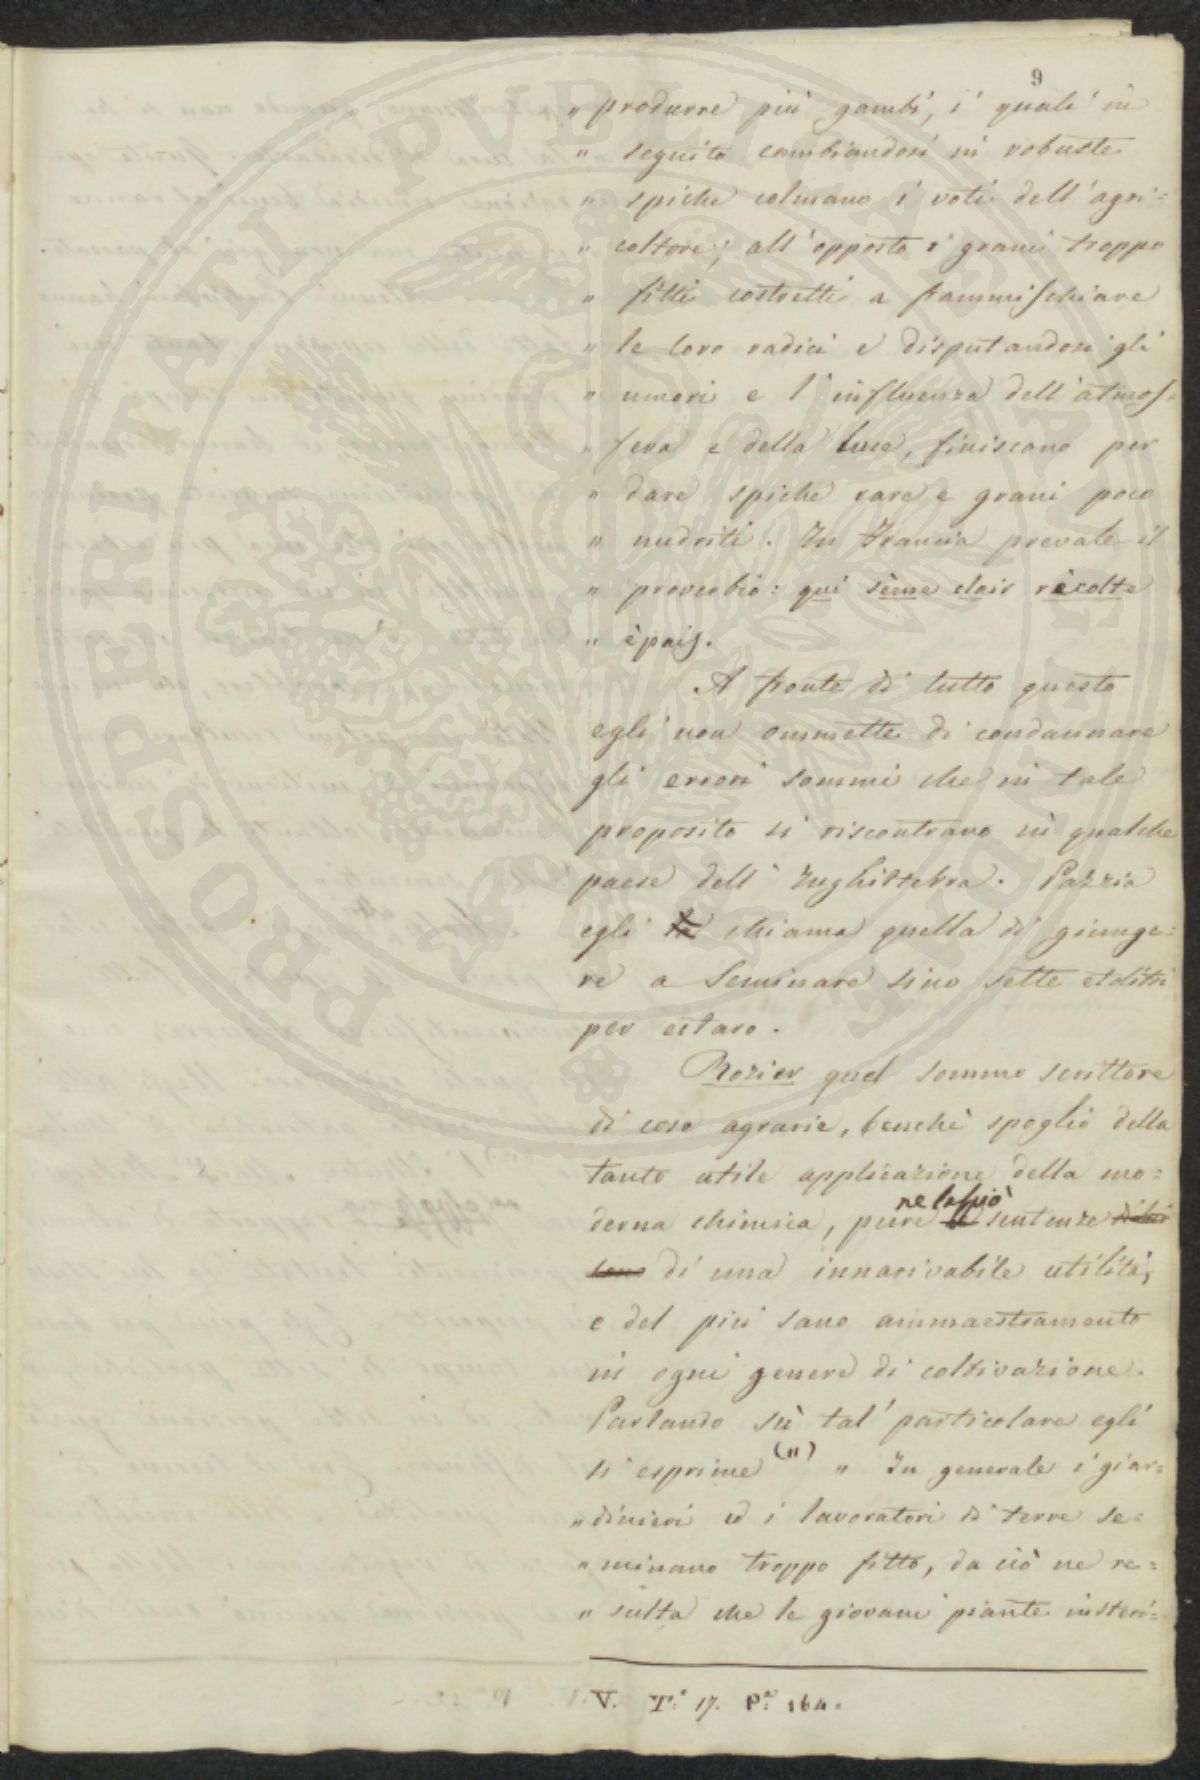 9
" produrre più gambi, i quali in
" seguito cambiandosi in robuste
" spiche colmano i voti dell'agri=
" coltore; all'opposto i grani troppo
" fitti costretti a frammischiare
" le loro radici e disputandosi gli
" umori e l'influenza dell'atmos=
" fera e della luce, finiscono per
" dare spiche rare e grani poco
" nudriti. In Francia prevale il
" proverbio: qui sème clair rècolte
" èpais.
A fronte di tutto questo
egli non ommette di condannare
gli errori sommi che in tale
proposito si riscontrano in qualche
paese dell'Inghilterra. Pazzia
egli chiama quella di giunge=
re a seminare sino sette etolitri
per ectaro.
Rozier quel sommo scrittore
di cose agrarie, benchè spoglio della
tanto utile applicazione della mo=
derna chimica, pure ne lasciò sentenze
di una innarivabile utilità,
e del più sano ammaestramento
in ogni genere di coltivazione.
Parlando sù tal' particolare egli
si esprime (11) " In generale i giar=
" dinieri ed i lavoratori di terre se=
" minano troppo fitto, da ciò ne re=
" sulta che le giovani piante insteri=
V. T.° 17. P.ª 164.
PROSPERITATI PVBLICAE AVGENDAE